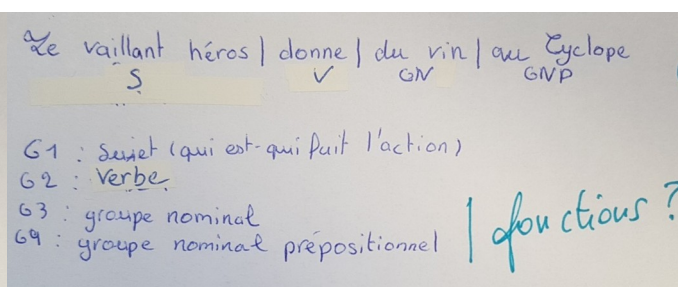 Le vaillant héros | donne | du vin | au Cyclope
S V GN GNP
G1 : Sujet (qui est-qui fait l'action)
G2 : Verbe
G3 : groupe nominal
G4 : groupe nominal prépositionnel | fonctions ?